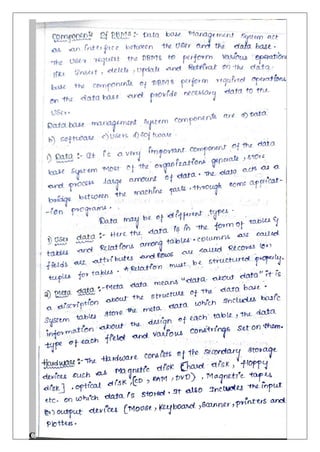 Components of DBMS :- Data base Management system act
as an interface between the user and the data base.
The user request the DBMS to perform various operations
like Insert, delete, update and Retrieval on the data-
base the components of DBMS perform required operations
on the data base and provide necessary data to the
user.
Data base management system components are a) Data
b) software c) users d) software
1) Data :- It is a very important component of the data
base system most of the organizations generate, store
and process large amount of data. the data act as a
bridge between the machine parts. through some applicat-
-ion programs.
Data may be of different types.
1) user data :- Here the data is in the form of tables
tables and Relations among tables. columns are called
fields are attributes and rows are called Records (or)
tuples for tables. A Relation must be structured properly.
2) meta data :- Meta data means "data about data" it is
a discription about the structure of the data base.
System tables store the meta data which includes basic
information about the design of each table, the data
type of each field and various constrings set on them.
Hardware :- The Hardware consists of the secondary storage
devices such as Magnetic disk [hard disk, Floppy
disk], optical disk, (CD, RAM, DVD), Magnetic tapes
etc. on which data is stored. It also includes the input
(or) output devices (Mouse, keyboard, scanner, printers and
Plotters.
C